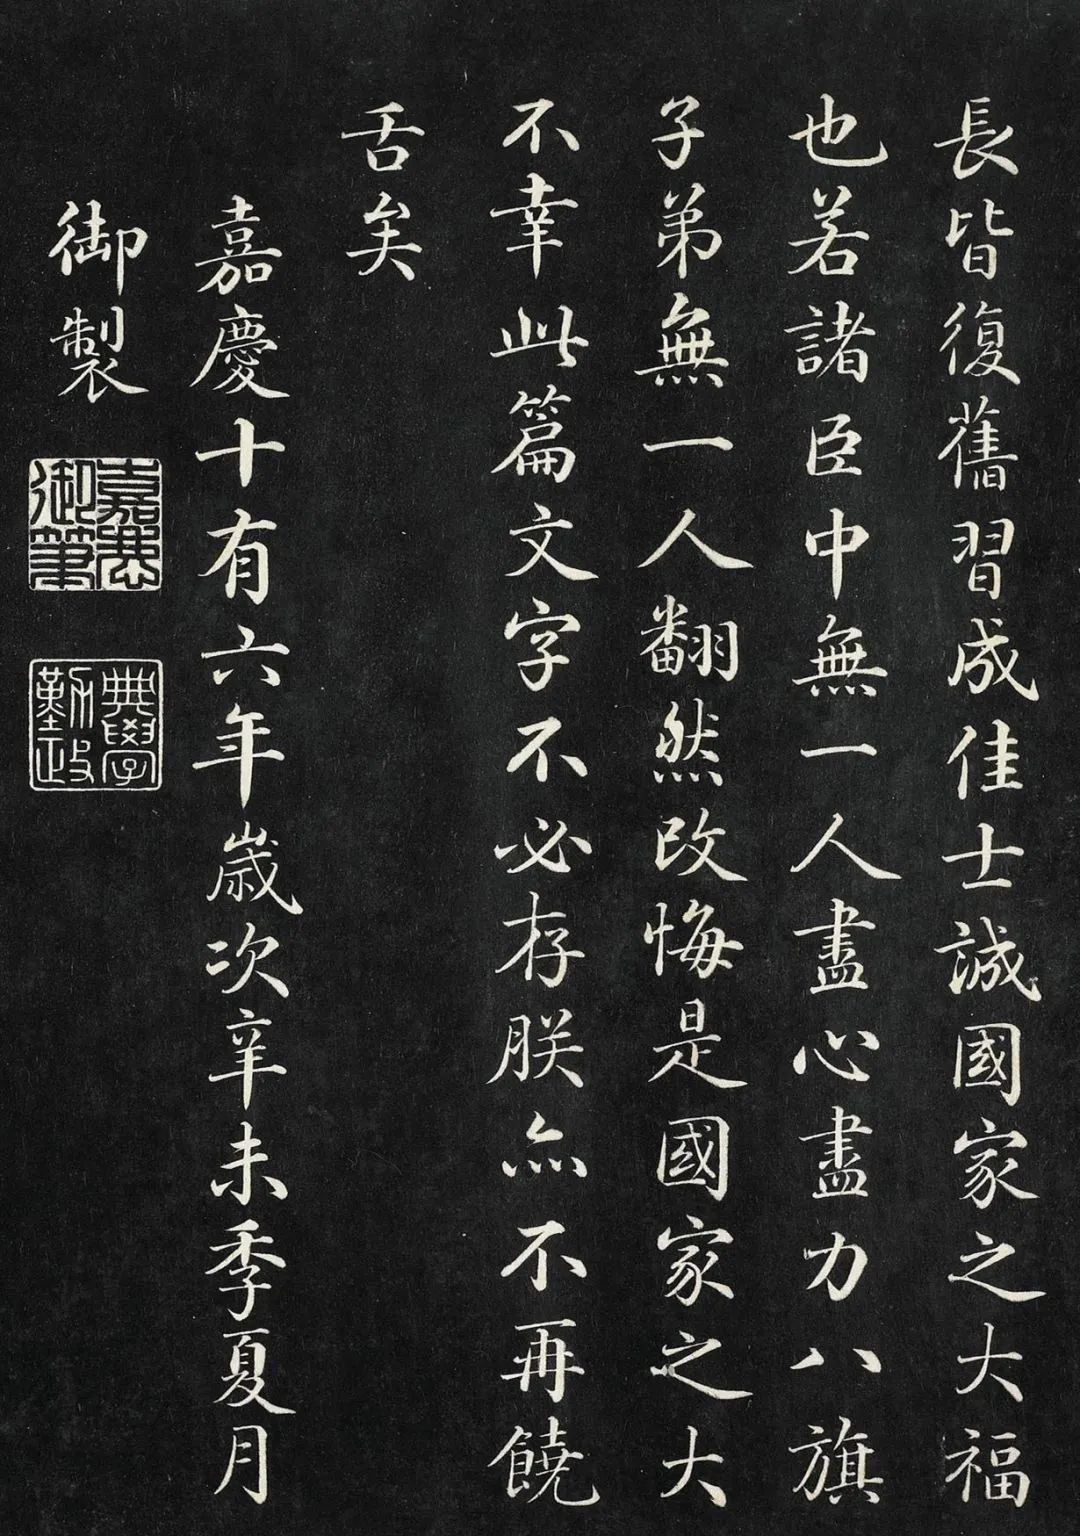 長皆復舊習成佳士誠國家之大福
也若諸臣中無一人盡心盡力八旗
子弟無一人翻然改悔是國家之大
不幸此篇文字不必存朕亦不再饒
舌矣
嘉慶十有六年歲次辛未季夏月
御製
嘉慶
御筆
典學
勤政